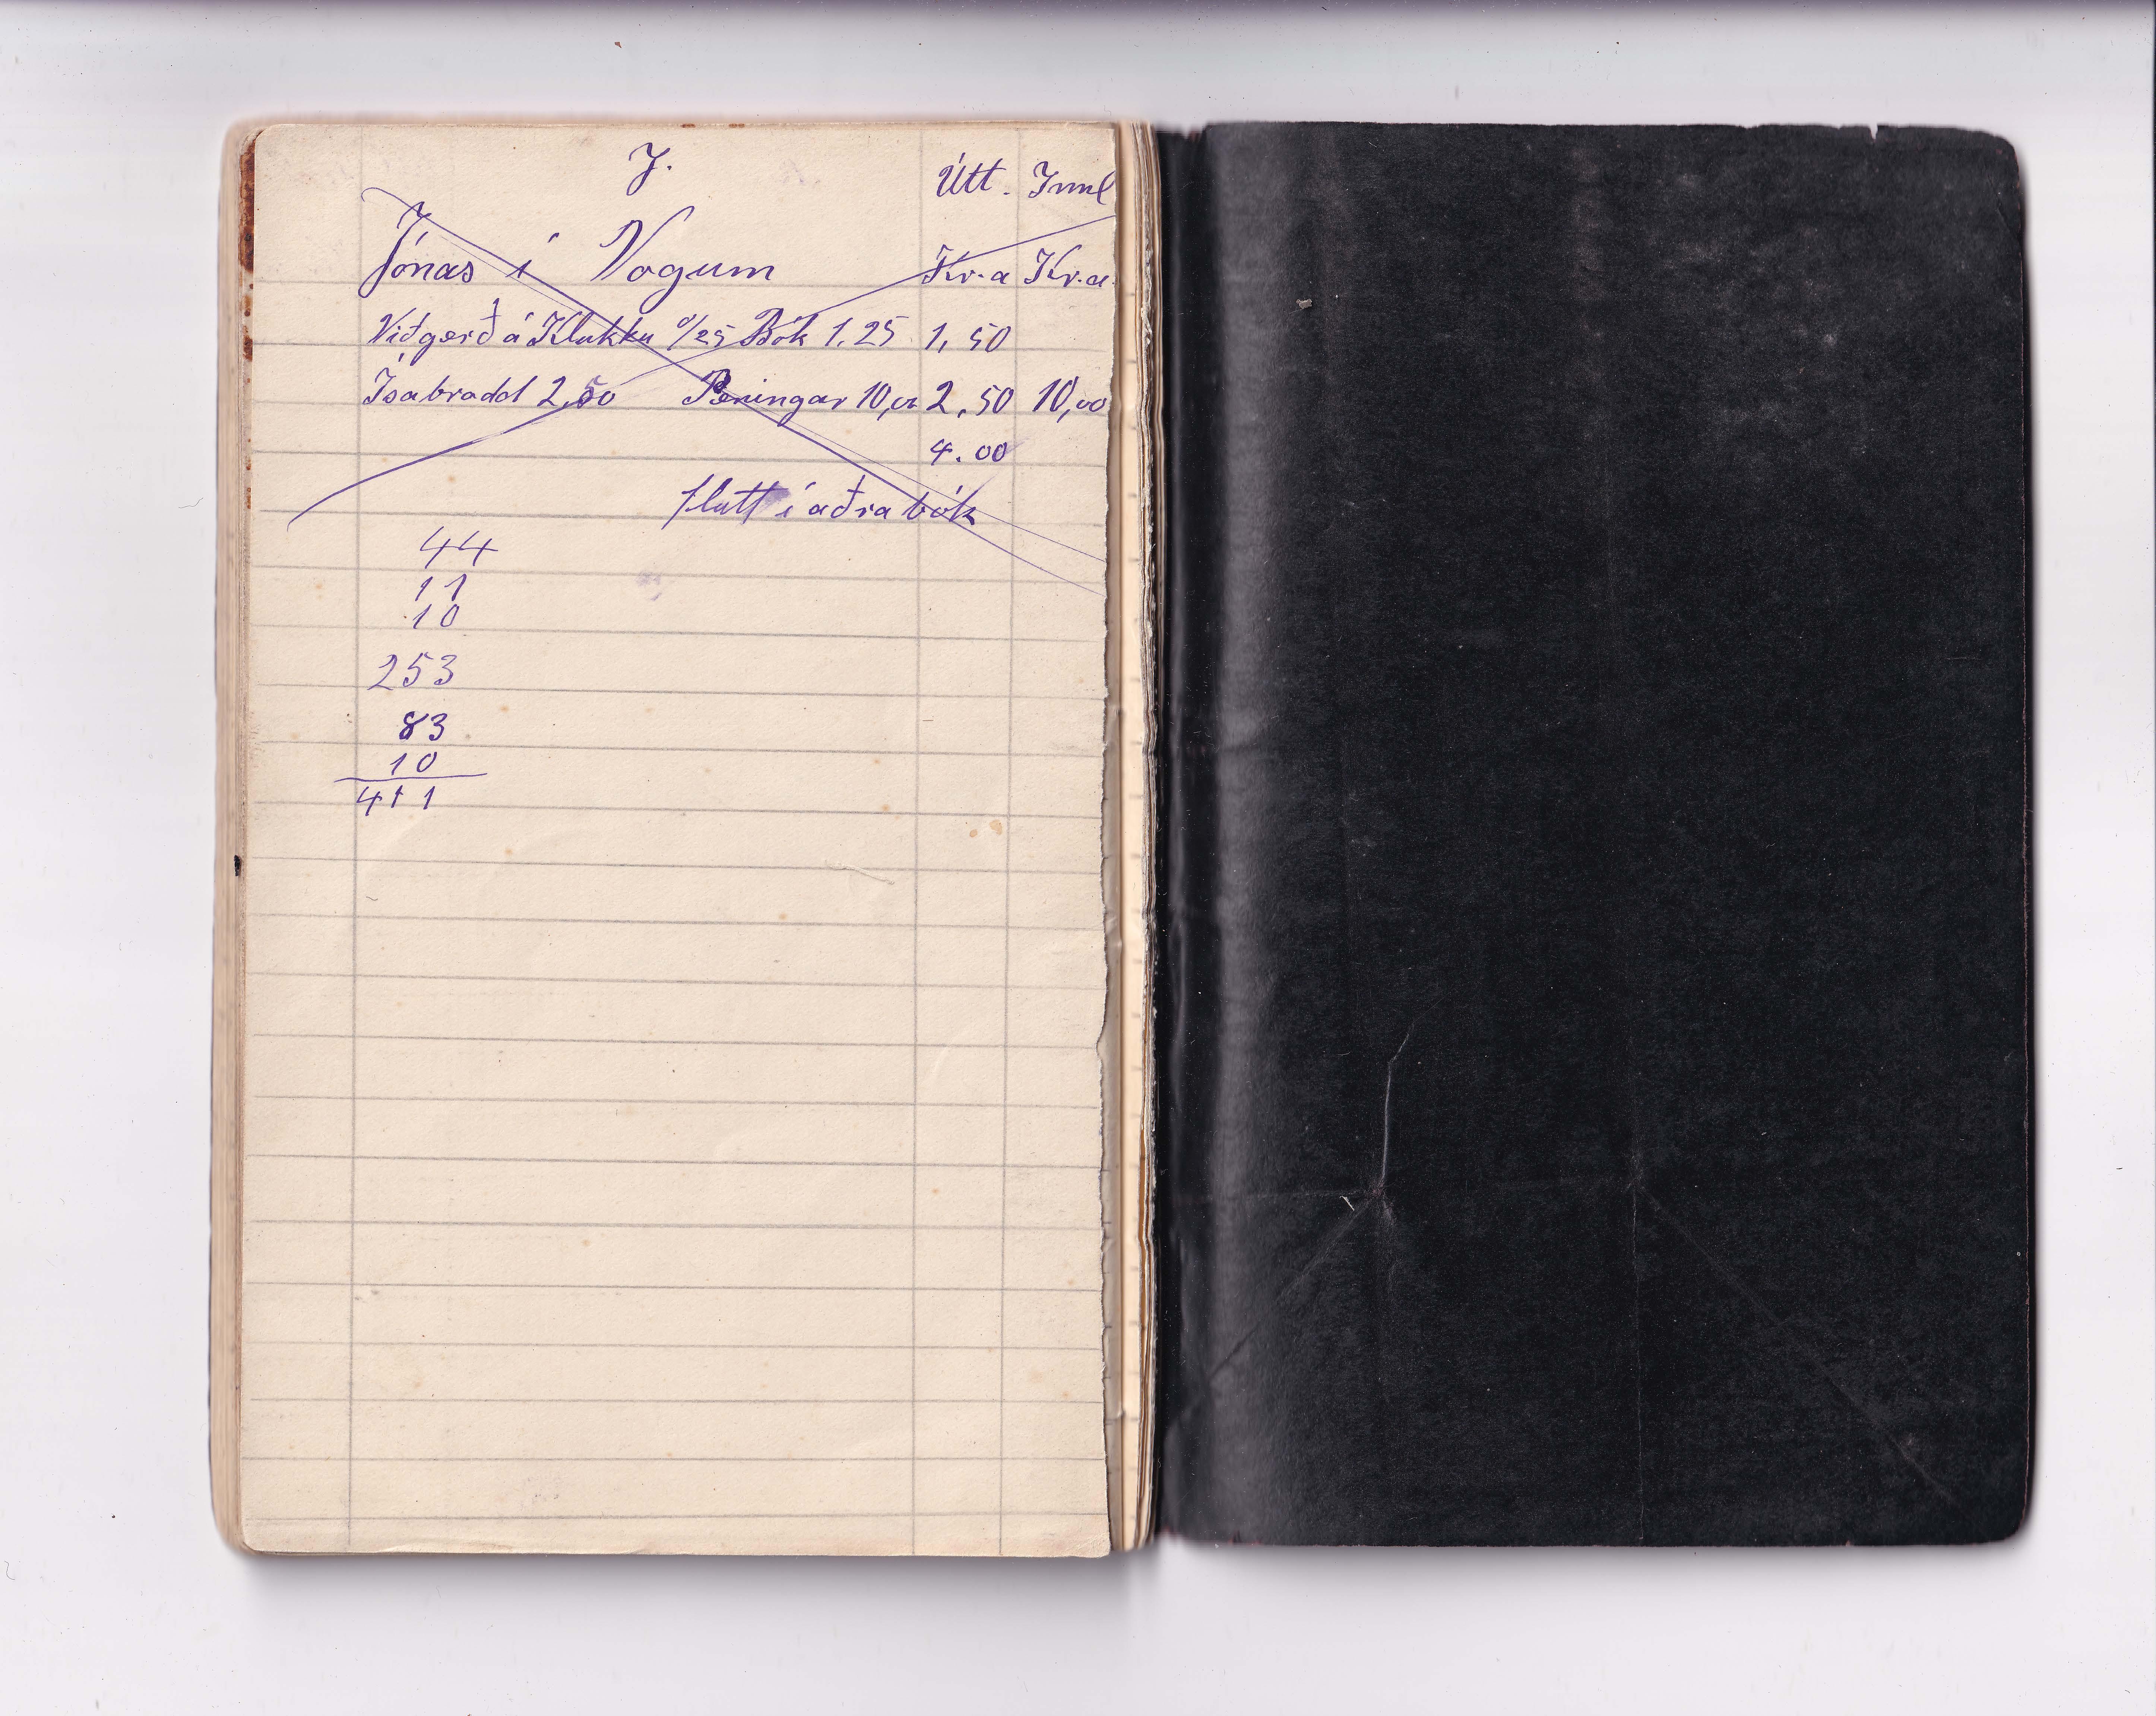 J.
Útt. Innl
Jónas í Vogum Kr. a Kr. a.
Viðgerð á Klukku 0/25 Bók 1,25 1,50
Ísabrodd 2,50 Peningar 10,00 2,50 10,00
4.00
flutt í aðra bók
44
11
10
253
83
10
411